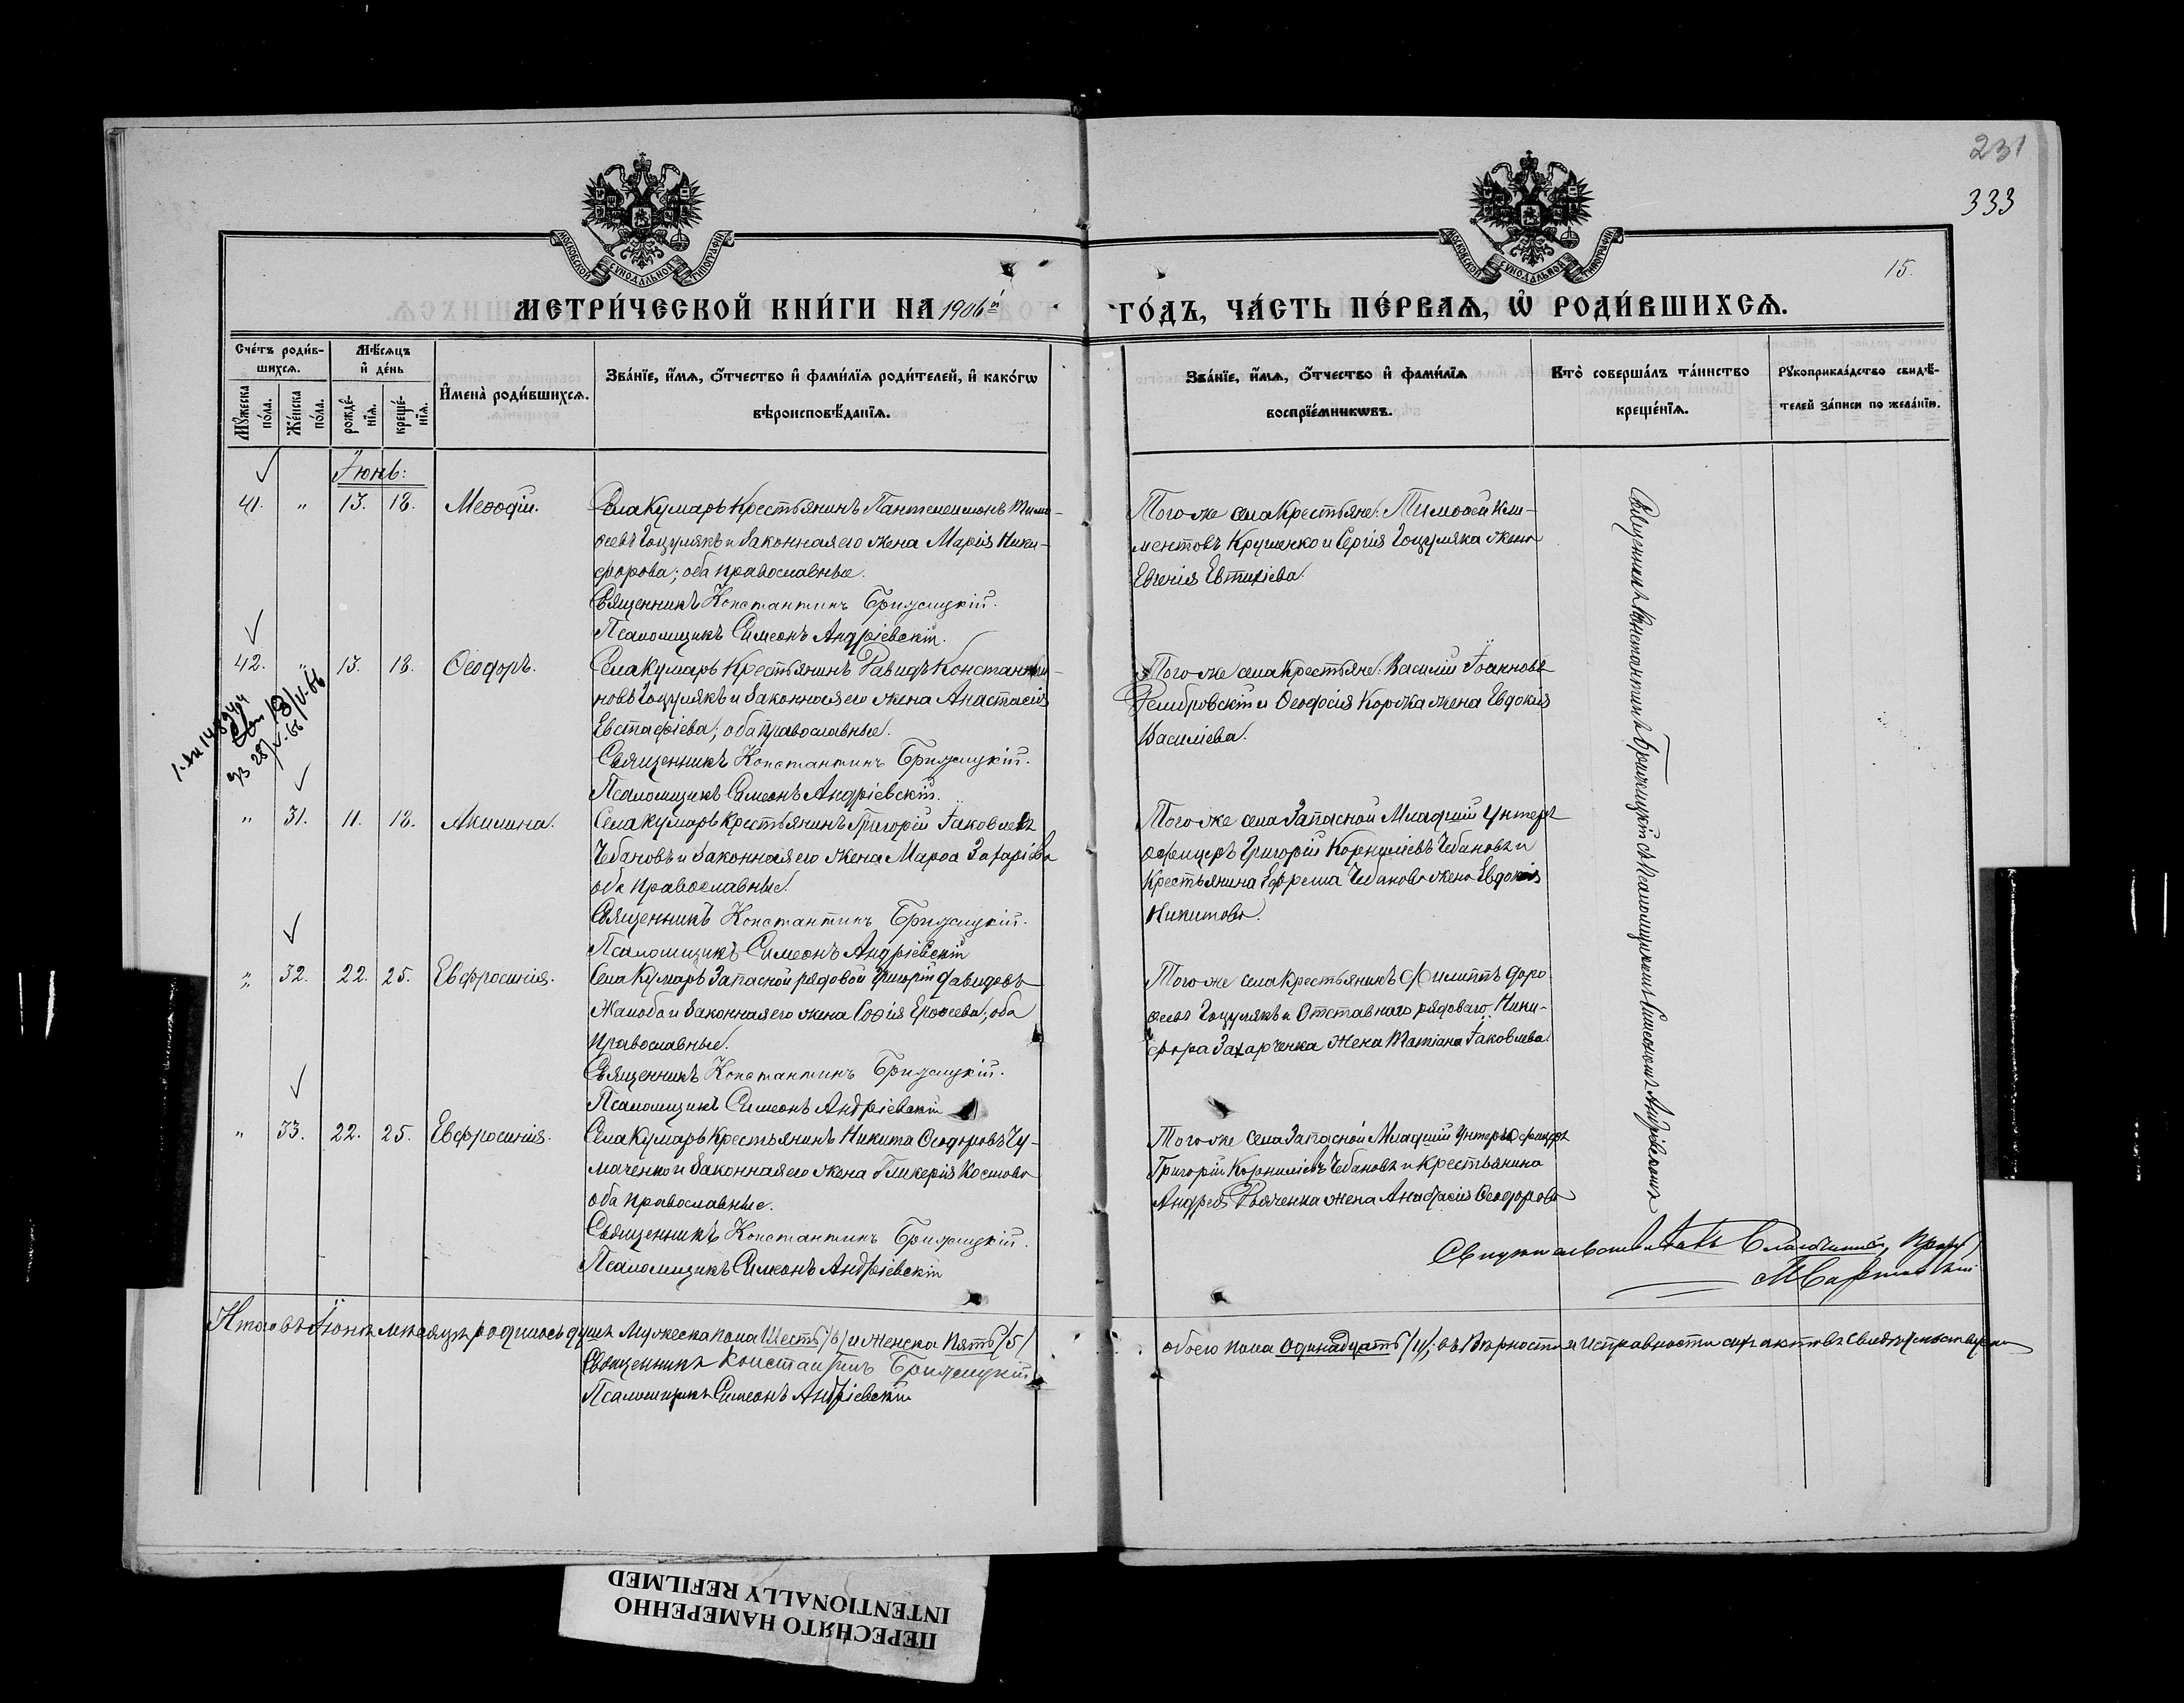 231
333
15.
МОСКОВСКОЙ СѴНОДАЛЬНОЙ ТИПОГРАФІИ
МОСКОВСКОЙ СѴНОДАЛЬНОЙ ТИПОГРАФІИ
МЕТРИ́ЧЕСКОЙ КНИ́ГИ НА 1906й
ГО́ДЪ, ЧА́СТЬ ПЕ́РВАѦ, Ѡ҆ РОДИ́ВШИХСѦ.
Сче́тъ роди́в-
шихсѧ.
Мꙋ́жеска по́ла.
Же́нска по́ла.
Мѣ́сѧцъ
и҆ де́нь
рожде́-
нїѧ.
креще́-
нїѧ.
И҆мена̀ роди́вшихсѧ.
Зва́нїе, и҆́мѧ, ѻ҆́тчество и҆ фами́лїѧ роди́телей, и҆ како́гѡ
вѣроисповѣ́данїѧ.
Зва́нїе, и҆́мѧ, ѻ҆́тчество и҆ фами́лїѧ
воспрїе́мникѡвъ.
Кто̀ соверша́лъ та́инство
креще́нїѧ.
Рꙋкоприкла́дство свидѣ́-
телей за́писи по жела́нїю.
Іюнь:
41. " 13. 18. Меѳодій.
Села Кумаръ Крестьянинъ Пантелеимонъ Тимо-
ѳеевъ Гоцулякъ и Законная его жена Марія Ники-
форова; оба православные.
Священникъ Константинъ Брижицкій.
Псаломщикъ Симеонъ Андріевскій.
Того же села Крестьяне: Тимоѳей Кли-
ментовъ Крушенко и Сергія Гоцуляка жена
Евгенія Евтихіева.
42. " 13. 18. Ѳеодоръ.
Села Кумаръ Крестьянинъ Давидъ Константи-
новъ Гоцулякъ и Законная его жена Анастасія
Евстафіева; оба православные.
Священникъ Константинъ Брижицкій.
Псаломщикъ Симеонъ Андріевскій.
Того же села Крестьяне: Василій Іоанновъ
Домбровскій и Ѳеодосія Коржа жена Евдокія
Василіева.
" 31. 11. 18. Акилина.
Села Кумаръ Крестьянинъ Григорій Іаковлевъ
Чебановъ и Законная его жена Марѳа Захаріева
оба православные.
Священникъ Константинъ Брижицкій.
Псаломщикъ Симеонъ Андріевскій
Того же села Запасной Младшій Унтеръ
офицеръ Григорій Корниліевъ Чебановъ и
Крестьянина Ефрема Чебанова жена Евдокія
Никитова.
" 32. 22. 25. Евфросинія.
Села Кумаръ Запасной рядовой Григорій Давидовъ
Жалоба и Законная его жена Софія Ероѳеева; оба
православные.
Священникъ Константинъ Брижицкій.
Псаломщикъ Симеонъ Андріевскій
Того же села Крестьянинъ Филиппъ Доро
ѳеевъ Гоцулякъ и Отставного рядоваго Ники-
фора Захарченка жена Татіана Іаковлева.
" 33. 22. 25. Евфросинія.
Села Кумаръ Крестьянинъ Никита Ѳеодоровъ Чу-
маченко и Законная его жена Гликерія Космова
оба православные.
Священникъ Константинъ Брижицкій.
Псаломщикъ Симеонъ Андріевскій
Того же села Запасной Младшій Унтеръ Офицеръ
Григорій Корниліевъ Чебановъ и Крестьянина
Андрея Дьяченка жена Анастасія Ѳеодорова
Священникъ Константинъ Брижицкій съ Псаломщикомъ Симеономъ Андріевскимъ
Итого въ Іюнѣ мѣсяцѣ родилось душъ Мужеска пола Шесть /6/ и Женска Пять /5/
Священникъ Константинъ Брижицкій
Псаломщикъ Симеонъ Андріевскій
обоего пола Одинадцать /11/; въ вѣрности и исправности сихъ актовъ Свидѣтельствуемъ
ПЕРЕСНЯТО НАМЕРЕННО
INTENTIONALLY REFILMED